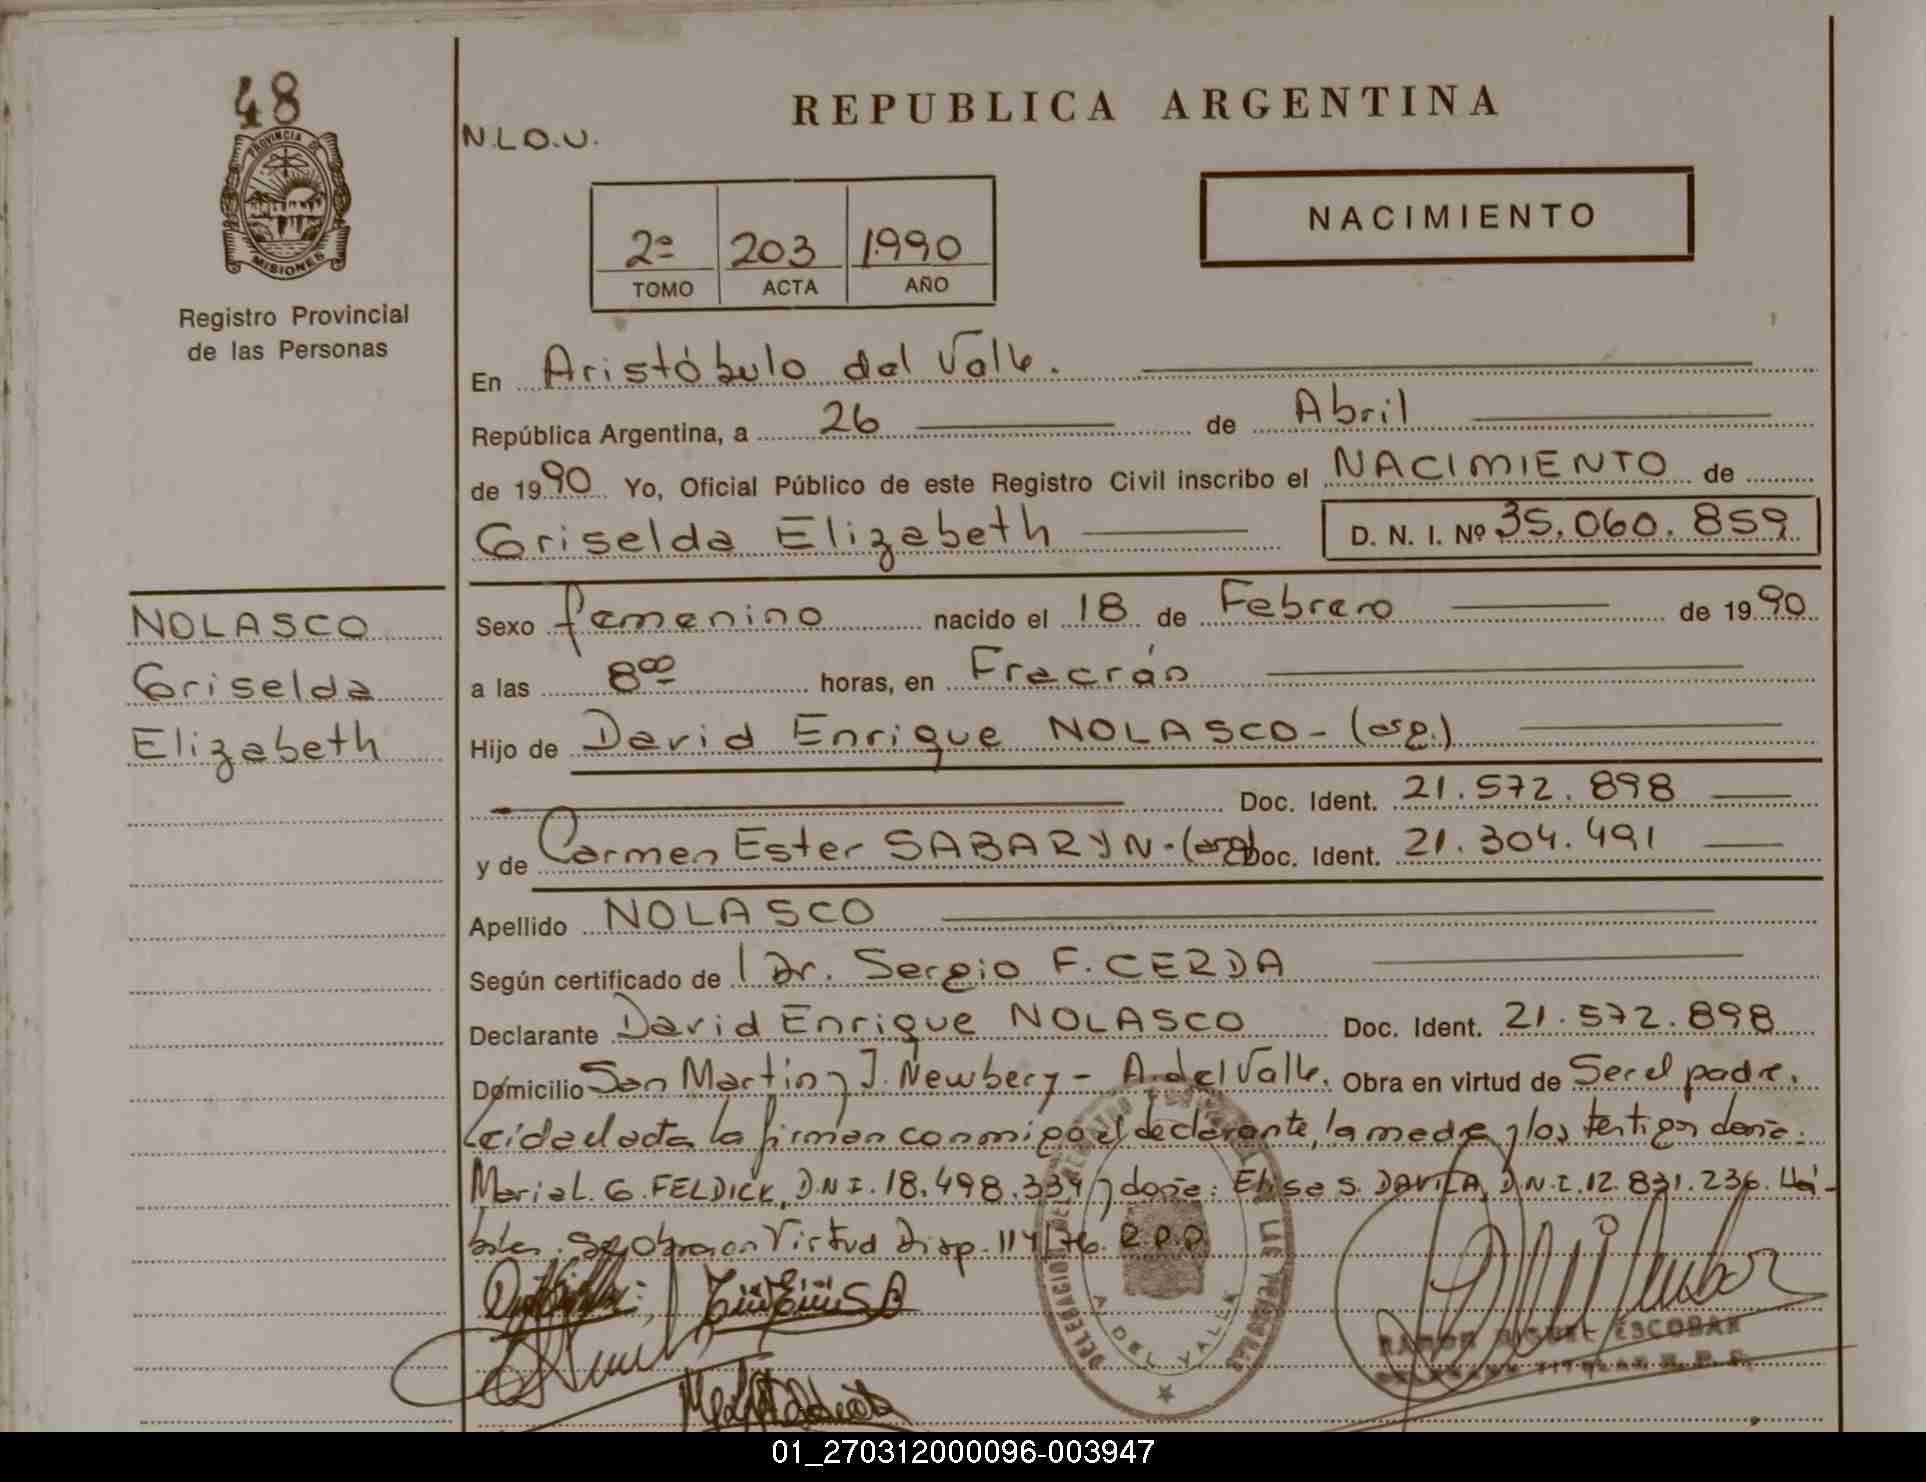 48
PROVINCIA DE
MISIONES
Registro Provincial
de las Personas
NOLASCO
Griselda
Elizabeth
N.L.O.U.
REPUBLICA ARGENTINA
2º 203 1990
TOMO ACTA AÑO
NACIMIENTO
En Aristóbulo del Valle.
República Argentina, a 26 de Abril
de 1990 Yo, Oficial Público de este Registro Civil inscribo el NACIMIENTO de
Griselda Elizabeth D. N. I. Nº 35.060.859
Sexo femenino nacido el 18 de Febrero de 1990
a las 8ºº horas, en Fracrán
Hijo de David Enrique NOLASCO - (arg.)
Doc. Ident. 21.572.898
y de Carmen Ester SABARYN - (arg) Doc. Ident. 21.304.491
Apellido NOLASCO
Según certificado de Dr. Sergio F. CERDA
Declarante David Enrique NOLASCO Doc. Ident. 21.572.898
Domicilio San Martin y J. Newbery - A. del Valle. Obra en virtud de Ser el padre.
Leida el acta, la firman conmigo el declarante, la madre y los testigos doña:
Maria L. G. FELDICK, D.N.I. 18.498.334 y doña: Elisa S. DAVILA, D.N.I. 12.831.236. Há-
biles. Se obra en Virtud Disp. 114/76. R.P.P.
A. DEL VALLE
RAMON MIGUEL ESCOBAR
01_270312000096-003947